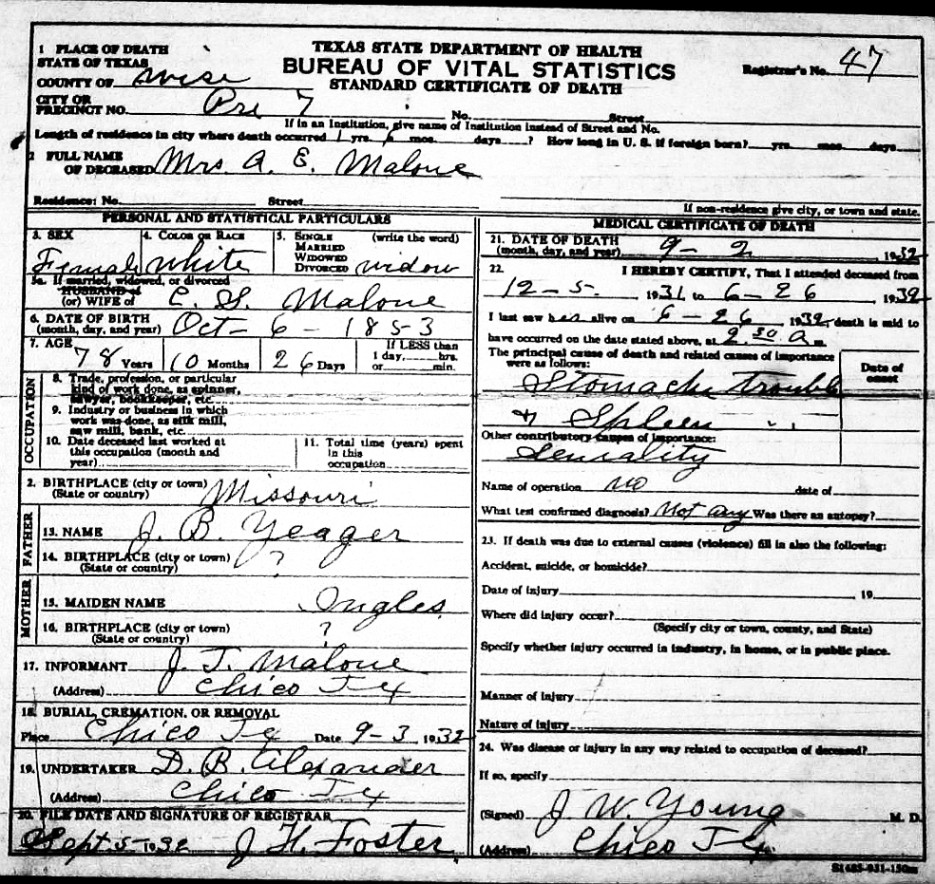 TEXAS STATE DEPARTMENT OF HEALTH
BUREAU OF VITAL STATISTICS
STANDARD CERTIFICATE OF DEATH
Registrar's No. 47
1 PLACE OF DEATH
STATE OF TEXAS
COUNTY OF Wise
CITY OR
PRECINCT NO. Pre 7 No. Street
If in an Institution, give name of Institution instead of Street and No.
Length of residence in city where death occurred 1 yrs. 6 mos. days ? How long in U. S. if foreign born? yrs. mos. days
2 FULL NAME
OF DECEASED Mrs. A. E. Malone
Residence: No. Street If non-residence give city, or town and state.
PERSONAL AND STATISTICAL PARTICULARS
3. SEX 4. COLOR OR RACE 5. SINGLE (write the word)
MARRIED
WIDOWED
DIVORCED
Female White widow
5a. If married, widowed, or divorced
HUSBAND of
(or) WIFE of E. S. Malone
6. DATE OF BIRTH
(month, day, and year) Oct- 6 - 1853
7. AGE If LESS than
78 Years 10 Months 26 Days 1 day, hrs.
or min.
OCCUPATION
8. Trade, profession, or particular
kind of work done, as spinner,
sawyer, bookkeeper, etc.
9. Industry or business in which
work was done, as silk mill,
saw mill, bank, etc.
10. Date deceased last worked at
this occupation (month and
year)
11. Total time (years) spent
in this
occupation
2. BIRTHPLACE (city or town)
(State or country) Missouri
FATHER
13. NAME J. B. Yeager
14. BIRTHPLACE (city or town)
(State or country) ?
MOTHER
15. MAIDEN NAME Ingles
16. BIRTHPLACE (city or town)
(State or country) ?
17. INFORMANT J. T. Malone
(Address) Chico Tex
18. BURIAL, CREMATION, OR REMOVAL
Place Chico Tex Date 9-3 1932
19. UNDERTAKER D. B. Alexander
(Address) Chico Tex
20. FILE DATE AND SIGNATURE OF REGISTRAR
Sept. 5- 1932 J. H. Foster
MEDICAL CERTIFICATE OF DEATH
21. DATE OF DEATH
(month, day, and year) 9-2 1932
22. I HEREBY CERTIFY, That I attended deceased from
12-5. 1931 to 6-26, 1932
I last saw her alive on 6-26 1932 death is said to
have occurred on the date stated above, at 9 30 a m
The principal cause of death and related causes of importance
were as follows: Date of
onset
Stomach trouble
& Spleen "
Other contributory causes of importance:
Senality
Name of operation no date of
What test confirmed diagnosis? Not any Was there an autopsy?
23. If death was due to external causes (violence) fill in also the following:
Accident, suicide, or homicide?
Date of injury 19
Where did injury occur?
(Specify city or town, county, and State)
Specify whether injury occurred in industry, in home, or in public place.
Manner of injury
Nature of injury
24. Was disease or injury in any way related to occupation of deceased?
If so, specify
(Signed) J. W. Young M. D.
(Address) Chico Tex
S1485-931-150m